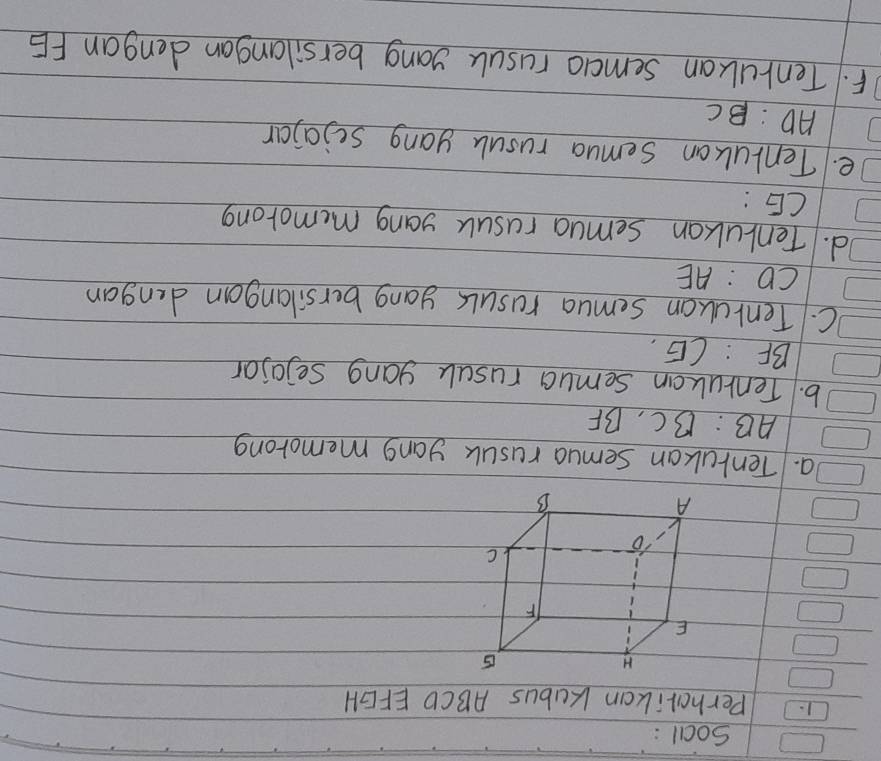 Soal :
1. Perhatikan kubus ABCD EFGH
H G
E F
D C
A B
a. Tentukan semua rusuk yang memotong
AB : BC, BF
b. Tentukan semua rusuk yang sejajar
BF : CG,
c. Tentukan semua rusuk yang bersilangan dengan
CD : AE
d. Tentukan semua rusuk yang memotong
CG :
e. Tentukan semua rusuk yang sejajar
AD : BC
F. Tentukan semua rusuk yang bersilangan dengan FG